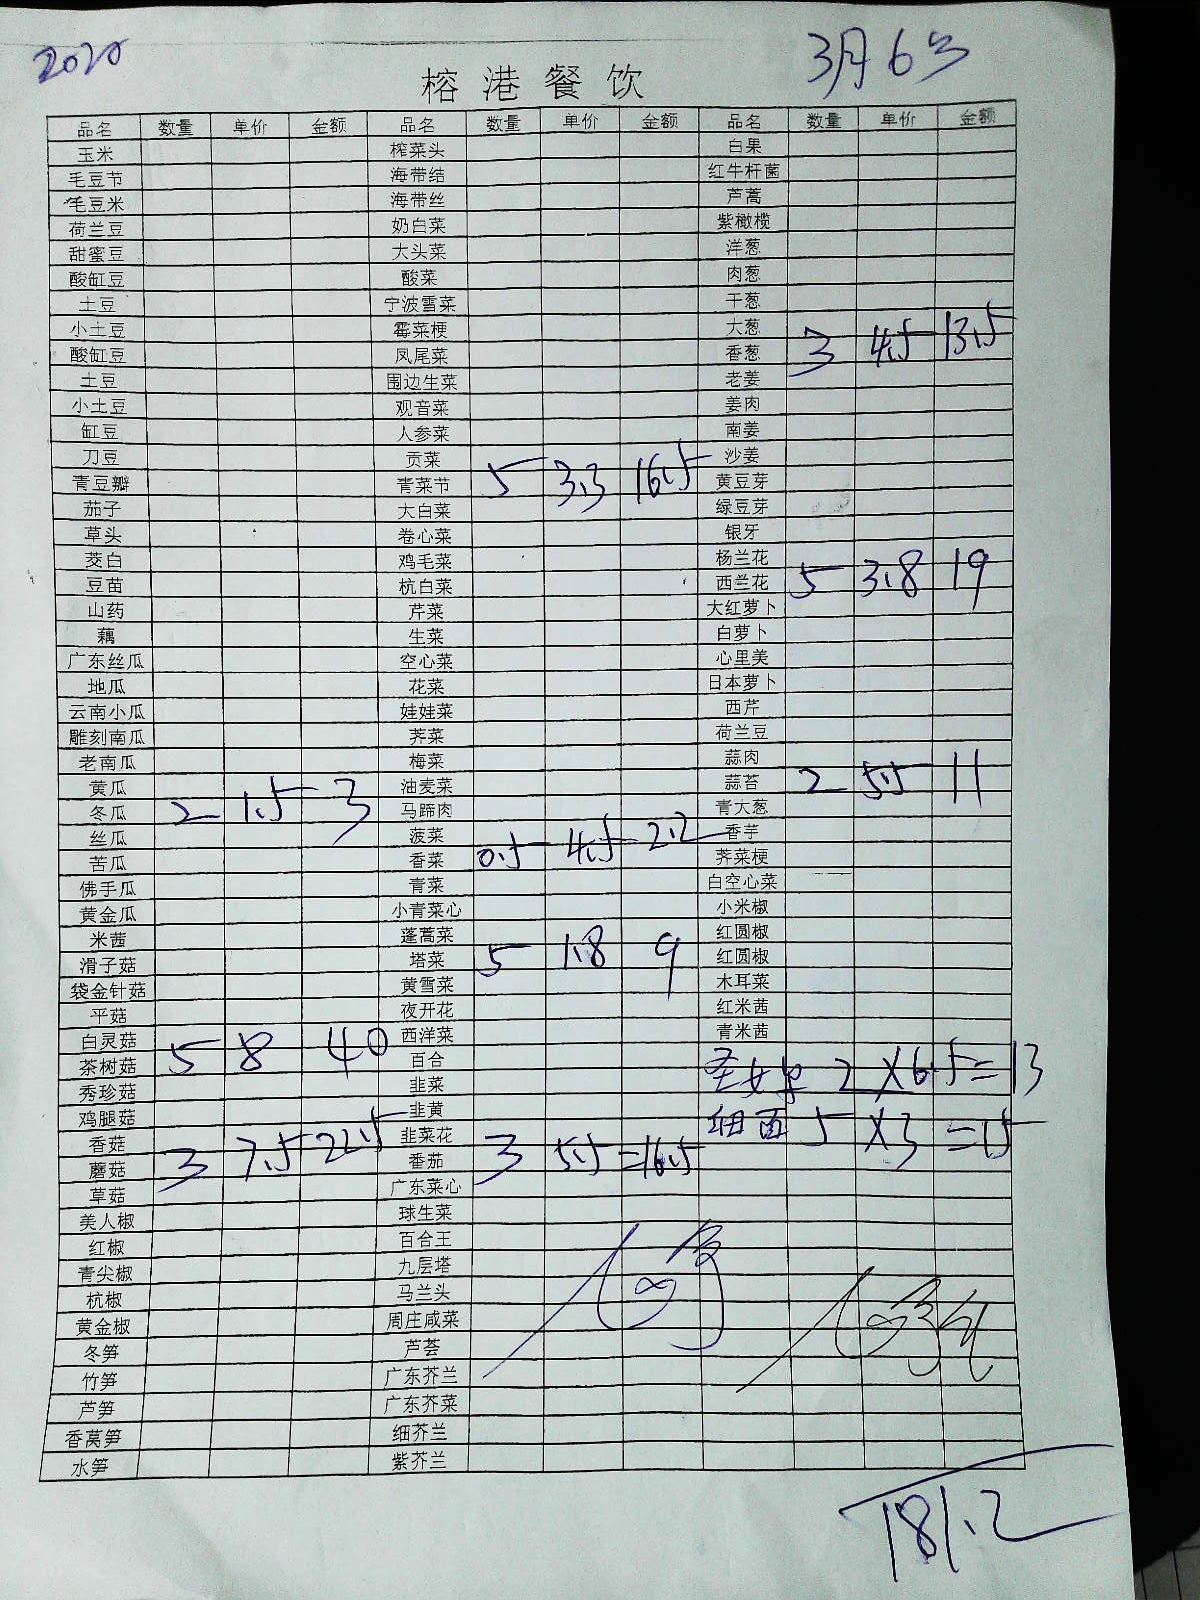 2020
3月6号
榕港餐饮
品名 数量 单价 金额 品名 数量 单价 金额 品名 数量 单价 金额
玉米 榨菜头 白果
毛豆节 海带结 红牛杆菌
毛豆米 海带丝 芦蒿
荷兰豆 奶白菜 紫橄榄
甜蜜豆 大头菜 洋葱
酸缸豆 酸菜 肉葱
土豆 宁波雪菜 干葱
小土豆 霉菜梗 大葱
酸缸豆 凤尾菜 香葱 3 4.5 13.5
土豆 围边生菜 老姜
小土豆 观音菜 姜肉
缸豆 人参菜 南姜
刀豆 贡菜 沙姜
青豆瓣 青菜节 5 3.3 16.5 黄豆芽
茄子 大白菜 绿豆芽
草头 卷心菜 银牙
茭白 鸡毛菜 杨兰花
豆苗 杭白菜 西兰花 5 3.8 19
山药 芹菜 大红萝卜
藕 生菜 白萝卜
广东丝瓜 空心菜 心里美
地瓜 花菜 日本萝卜
云南小瓜 娃娃菜 西芹
雕刻南瓜 荠菜 荷兰豆
老南瓜 梅菜 蒜肉
黄瓜 油麦菜 蒜苔 2 5.5 11
冬瓜 2 1.5 3 马蹄肉 青大葱
丝瓜 菠菜 香芋
苦瓜 香菜 0.5 4.5 2.2 荠菜梗
佛手瓜 青菜 白空心菜
黄金瓜 小青菜心 小米椒
米茜 蓬蒿菜 红圆椒
滑子菇 塔菜 5 1.8 9 红圆椒
袋金针菇 黄雪菜 木耳菜
平菇 夜开花 红米茜
白灵菇 西洋菜 青米茜
茶树菇 5 8 40 百合 圣女果 2 X6.5=13
秀珍菇 韭菜
鸡腿菇 韭黄 细面 5 X3 =15
香菇 韭菜花
蘑菇 3 7.5 22.5 番茄 3 5.5 =16.5
草菇 广东菜心
美人椒 球生菜
红椒 百合王
青尖椒 九层塔
杭椒 马兰头
黄金椒 周庄咸菜
冬笋 芦荟
竹笋 广东芥兰
芦笋 广东芥菜
香莴笋 细芥兰
水笋 紫芥兰
181.2